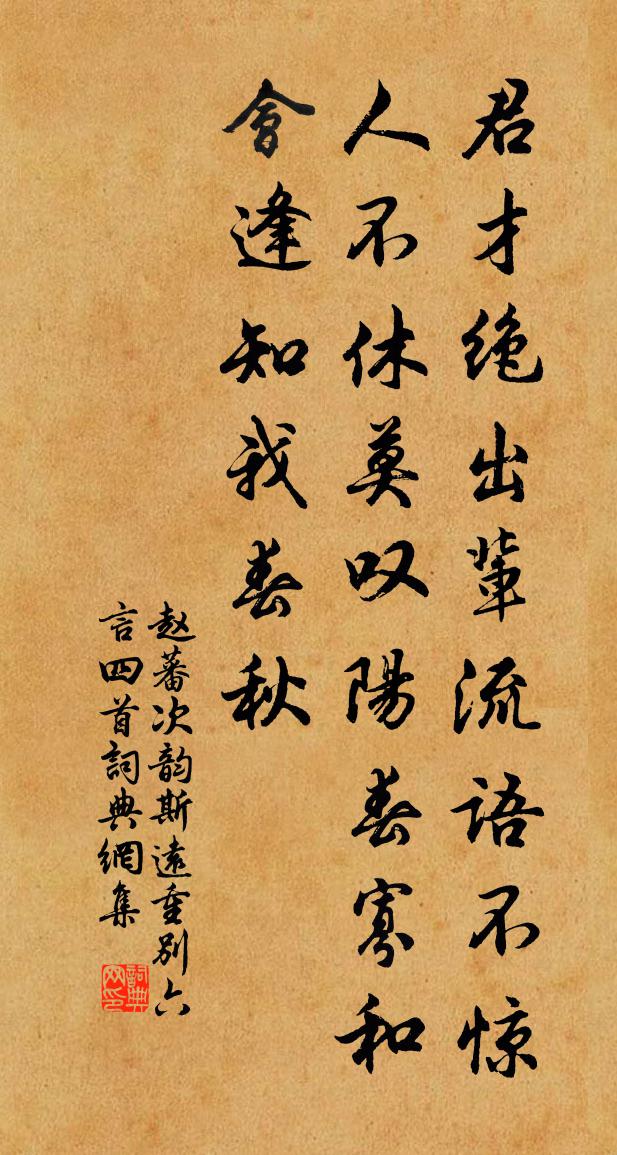 君才绝出輩流語不惊
人不休莫叹陽春寡和
會逢知我春秋
赵蕃次韵斯遠重别六
言四首詞典網集
詞典网印